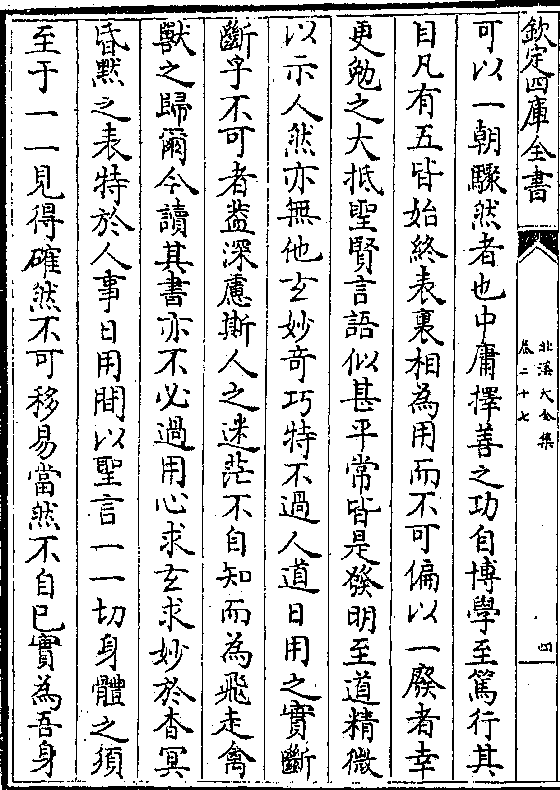 欽定四庫全書
北溪大全集
卷二十七
四
可以一朝驟然者也中庸擇善之功自博學至篤行其
目凡有五皆始終表裏相為用而不可偏以一廢者幸
更勉之大抵聖賢言語似甚平常皆是發明至道精微
以示人然亦無他玄妙奇巧特不過人道日用之實斷
斷乎不可者葢深慮斯人之迷茫不自知而為飛走禽
獸之歸爾今讀其書亦不必過用心求玄求妙於杳冥
昏黙之表特於人事日用間以聖言一一切身體之須
至于一一見得確然不可移易當然不自已實為吾身